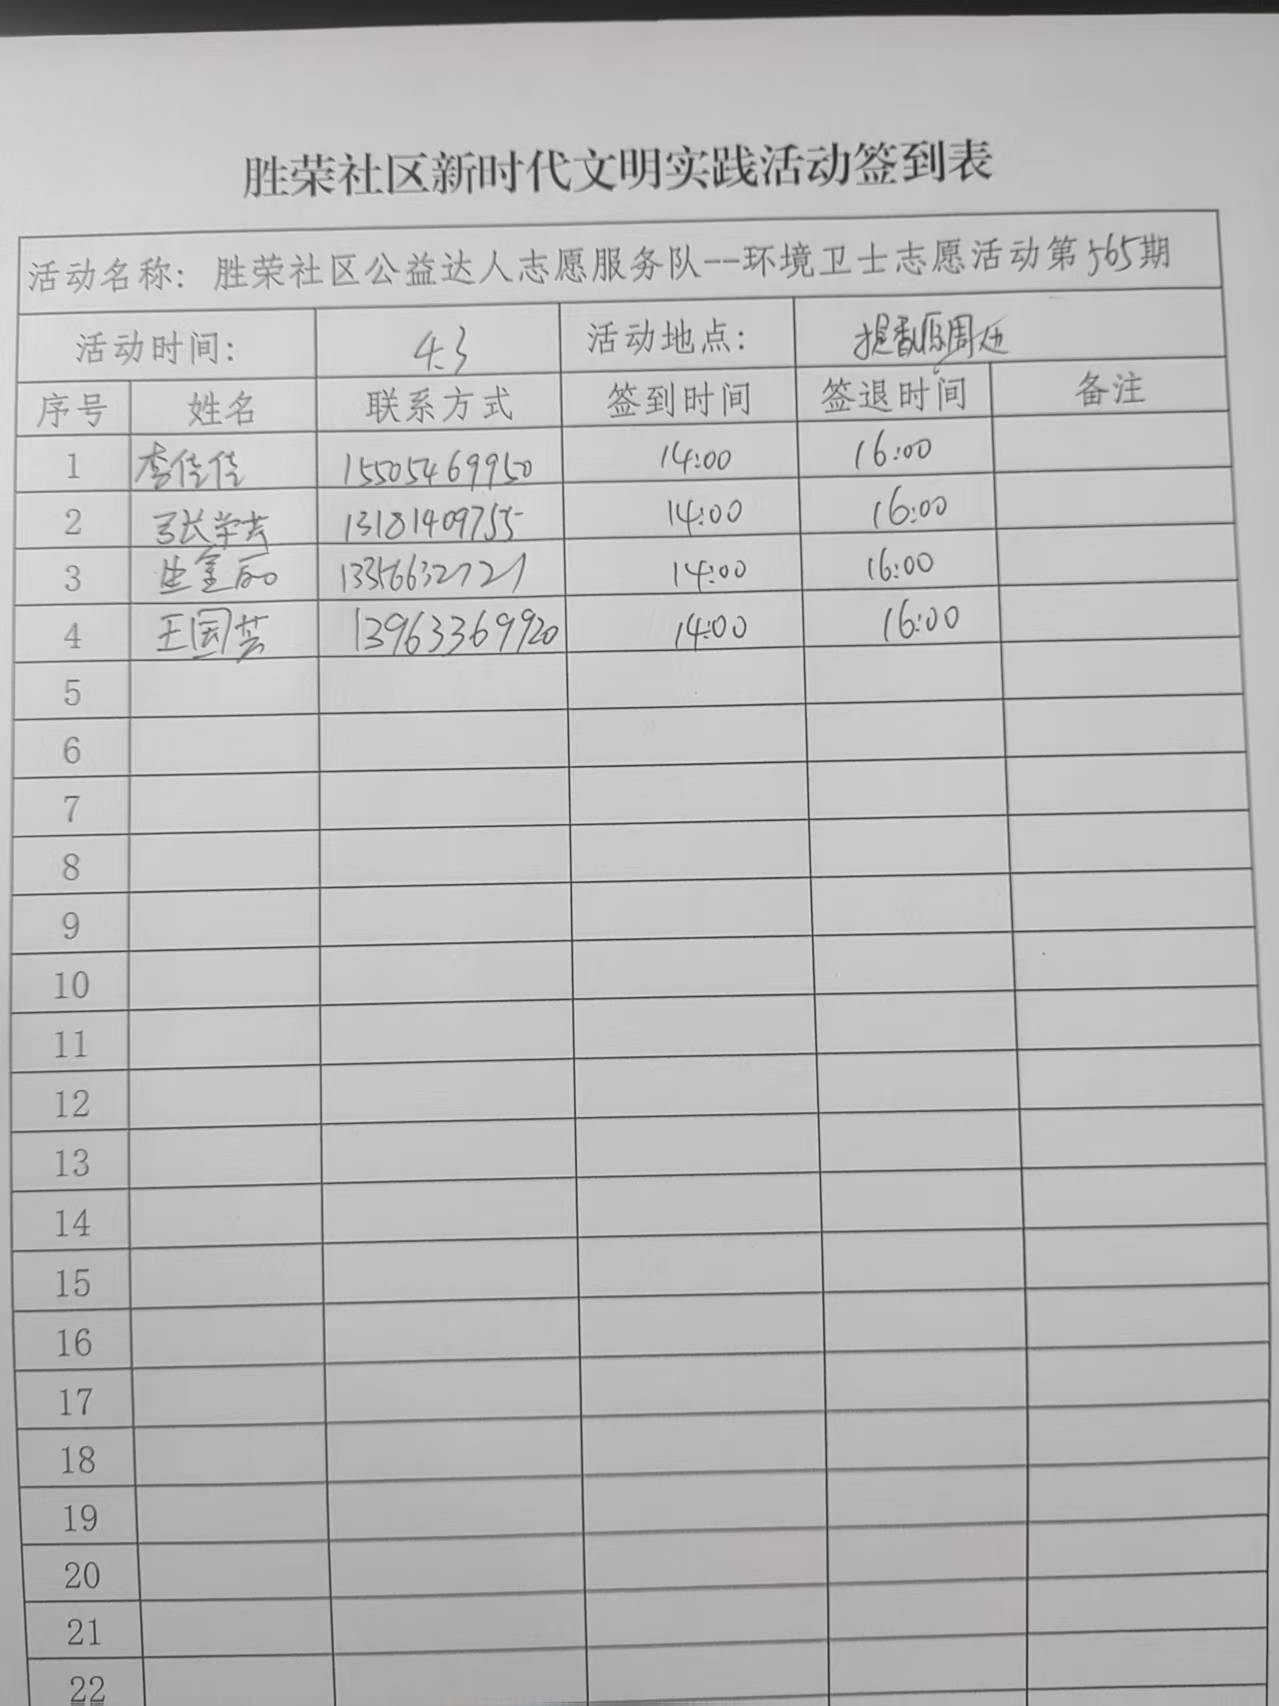 胜荣社区新时代文明实践活动签到表
活动名称：胜荣社区公益达人志愿服务队--环境卫士志愿活动第565期
活动时间： 4.3 活动地点： 提香源周边
序号 姓名 联系方式 签到时间 签退时间 备注
1 李佳佳 15505469950 14:00 16:00
2 张学 13181409755 14:00 16:00
3 金丽 14:00 16:00
4 王国芸 13963369920 14:00 16:00
5
6
7
8
9
10
11
12
13
14
15
16
17
18
19
20
21
22